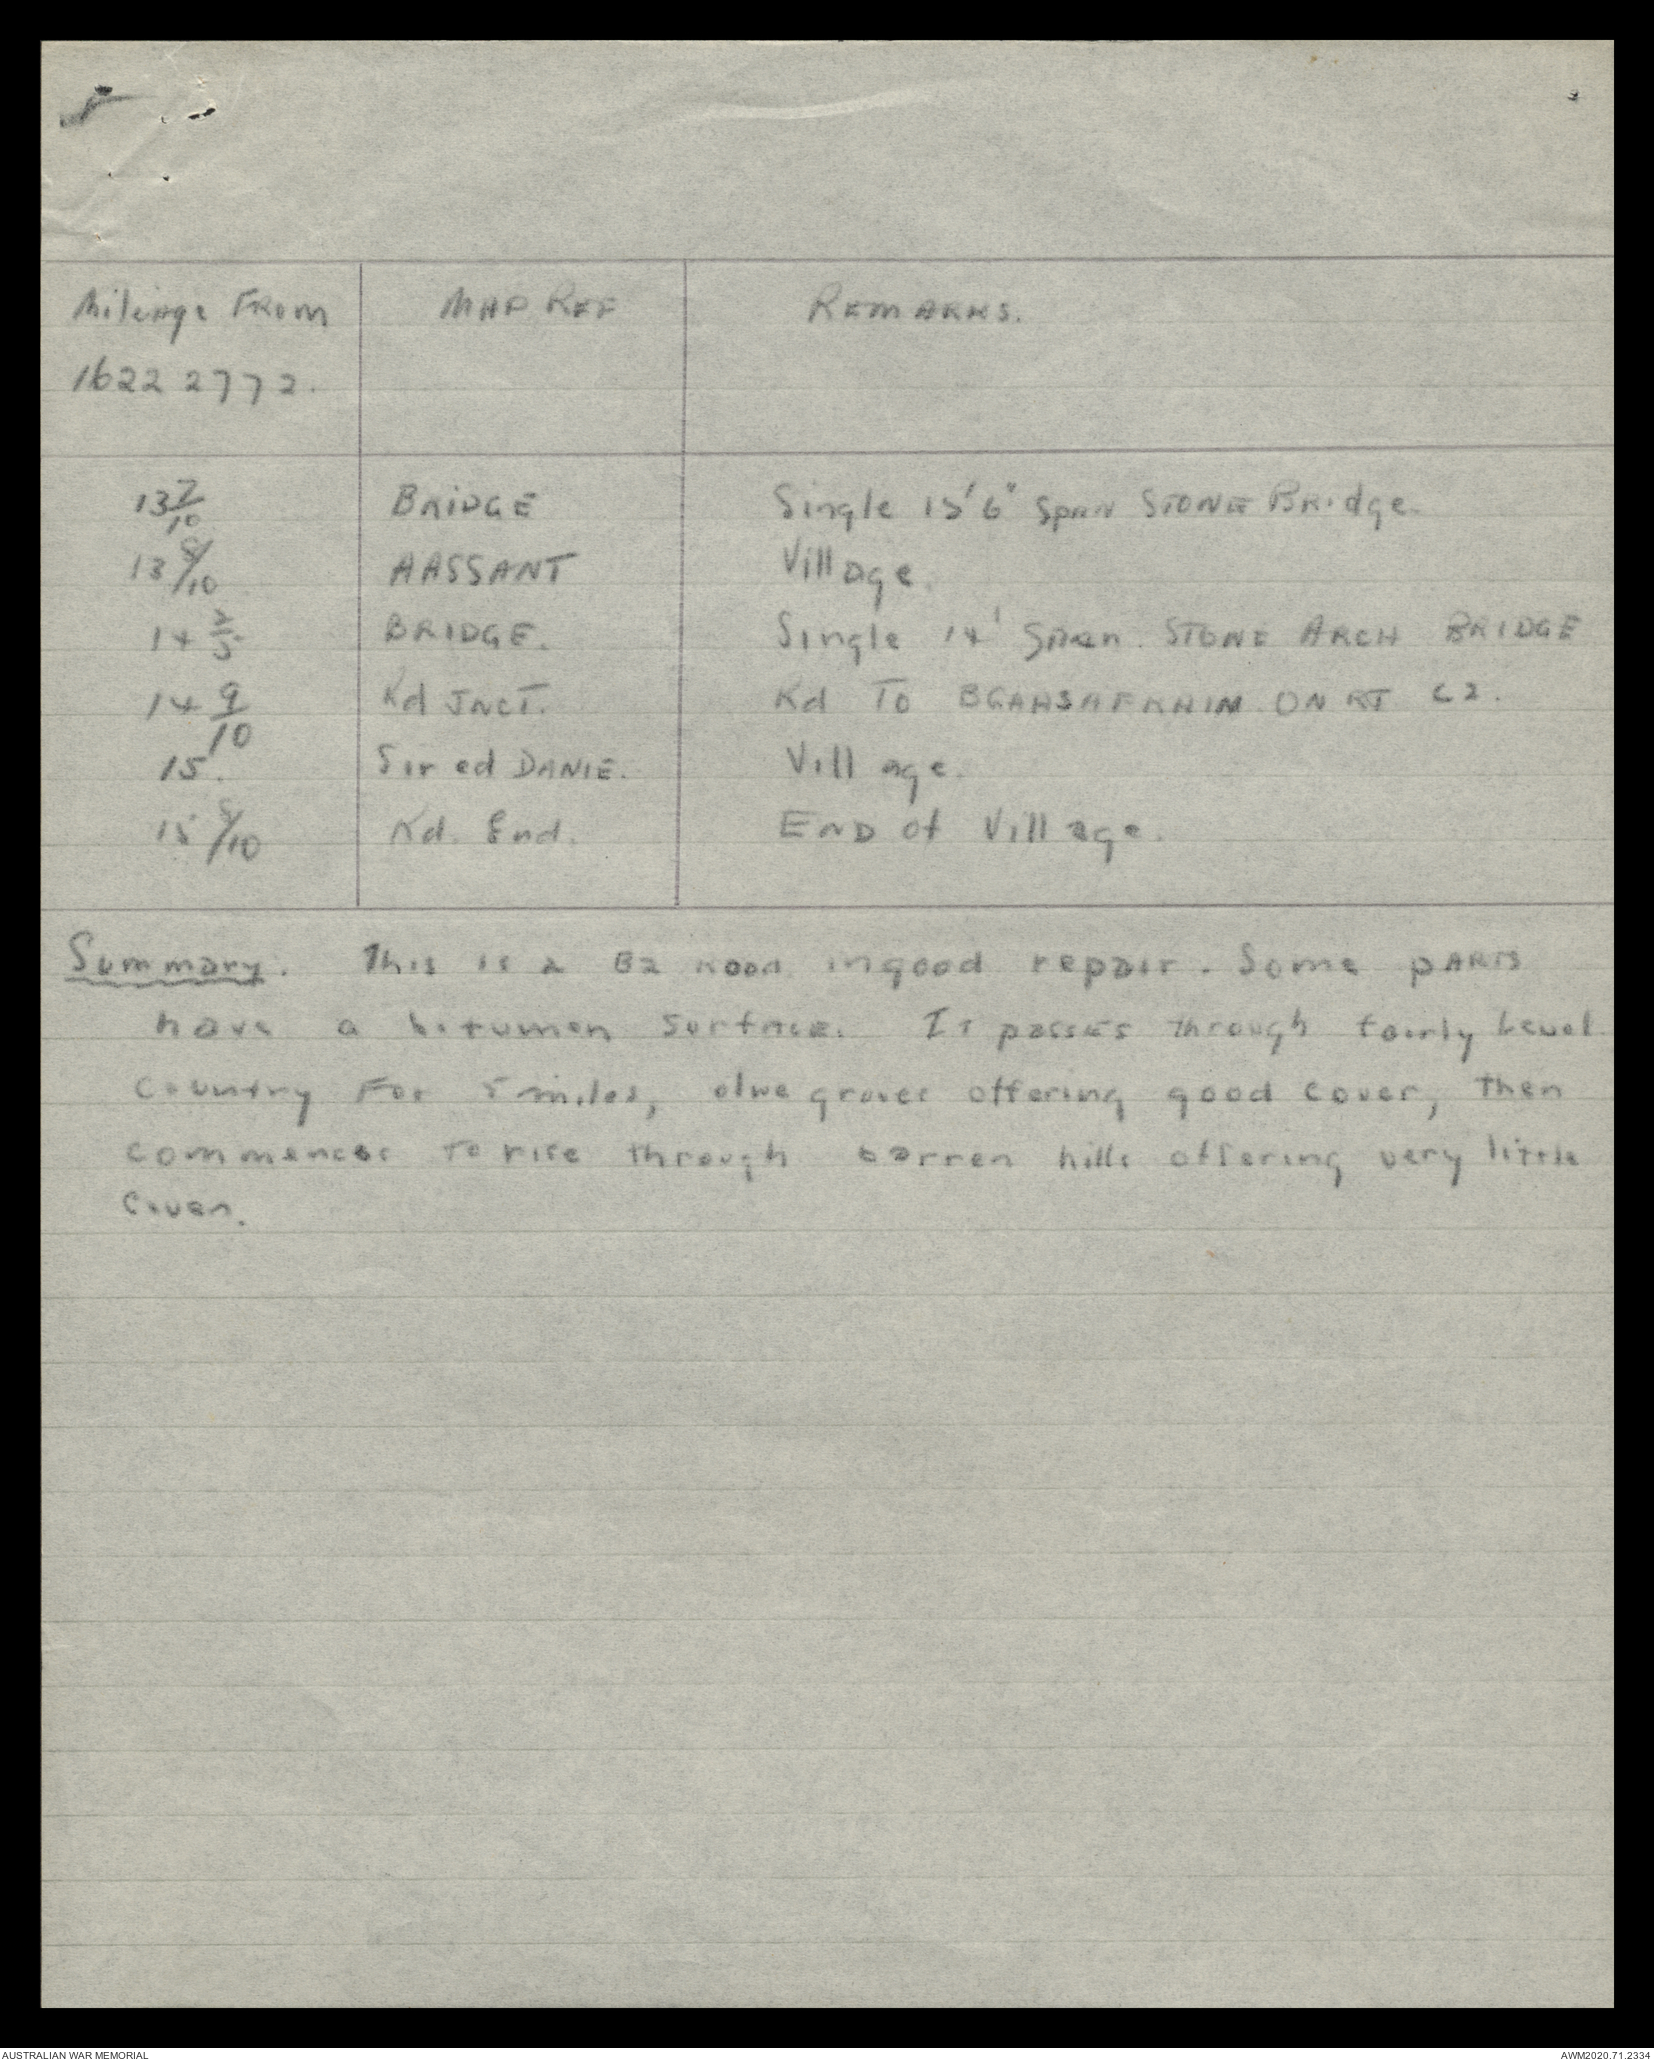 Mileage From MAP REF REMARKS.
1622 2772.
13 7/10 BRIDGE Single 15'6" Span STONE BRidge.
13 8/10 AASSANT Village.
14 2/5 BRIDGE. Single 14' Span. STONE ARCH BRIDGE
14 9/10 Rd JNCT. Rd TO ON RT C2.
15. Sir ed DANIE. Village.
15 9/10 Rd. End. END of Village.
Summary. This is a B2 Road in good repair. Some pARTS
have a bitumen surface. It passes through fairly Level
country For 5 miles, olive groves offering good cover, then
commences to rise through barren hills offering very little
cover.
AUSTRALIAN WAR MEMORIAL AWM2020.71.2334